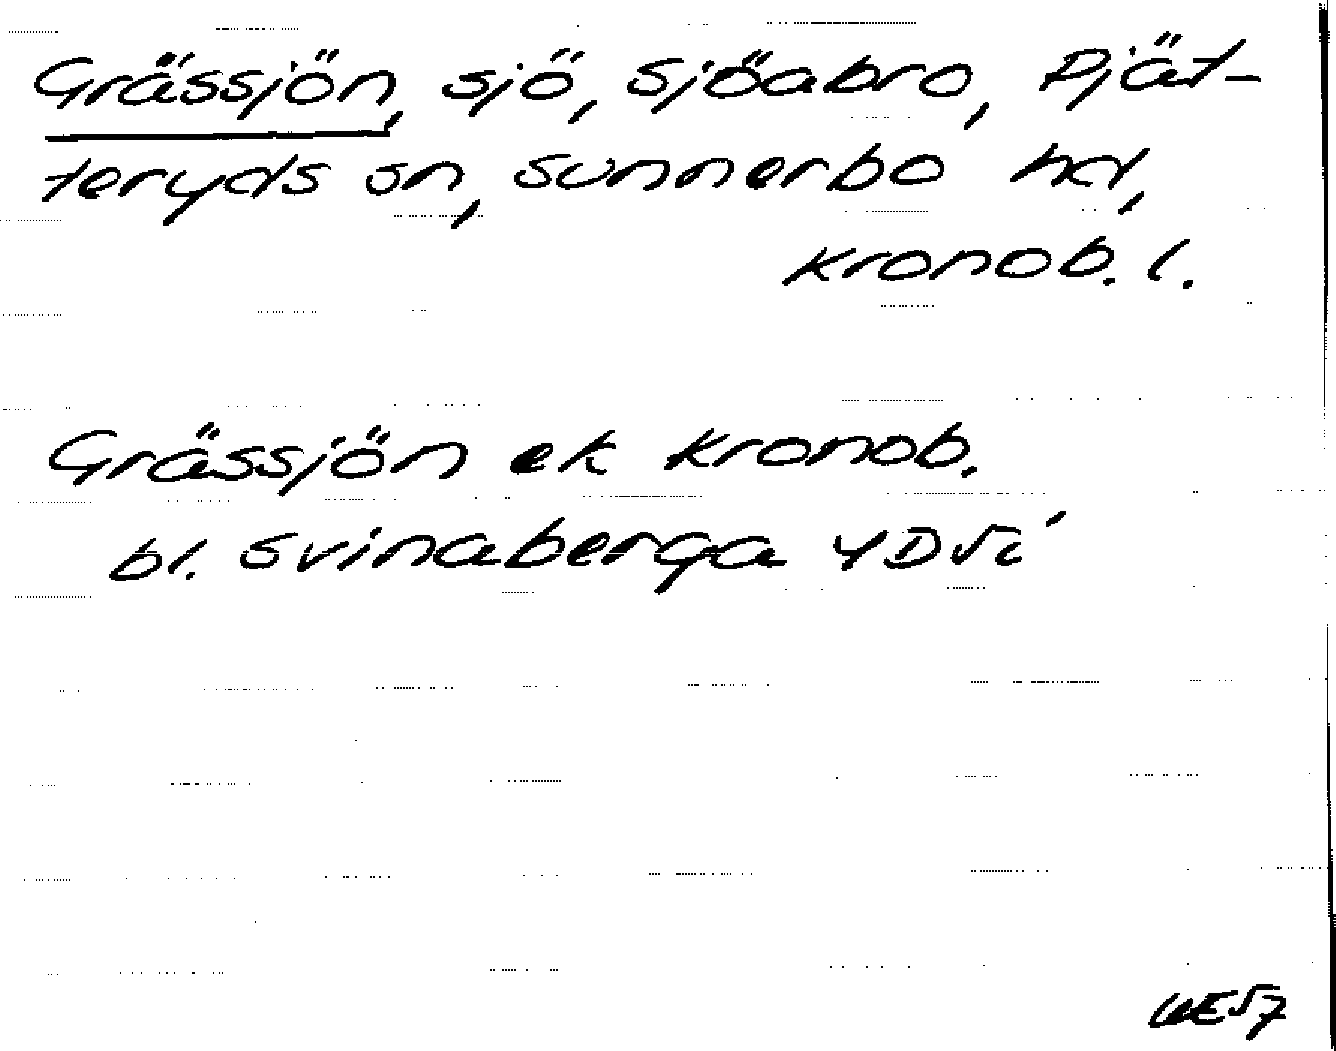 Grässjön, sjö, Sjöabro, Pjät-
teryds sn, Sunnerbo hd,
Kronob. l.
Grässjön ek Kronob.
bl. Svinaberga 4D